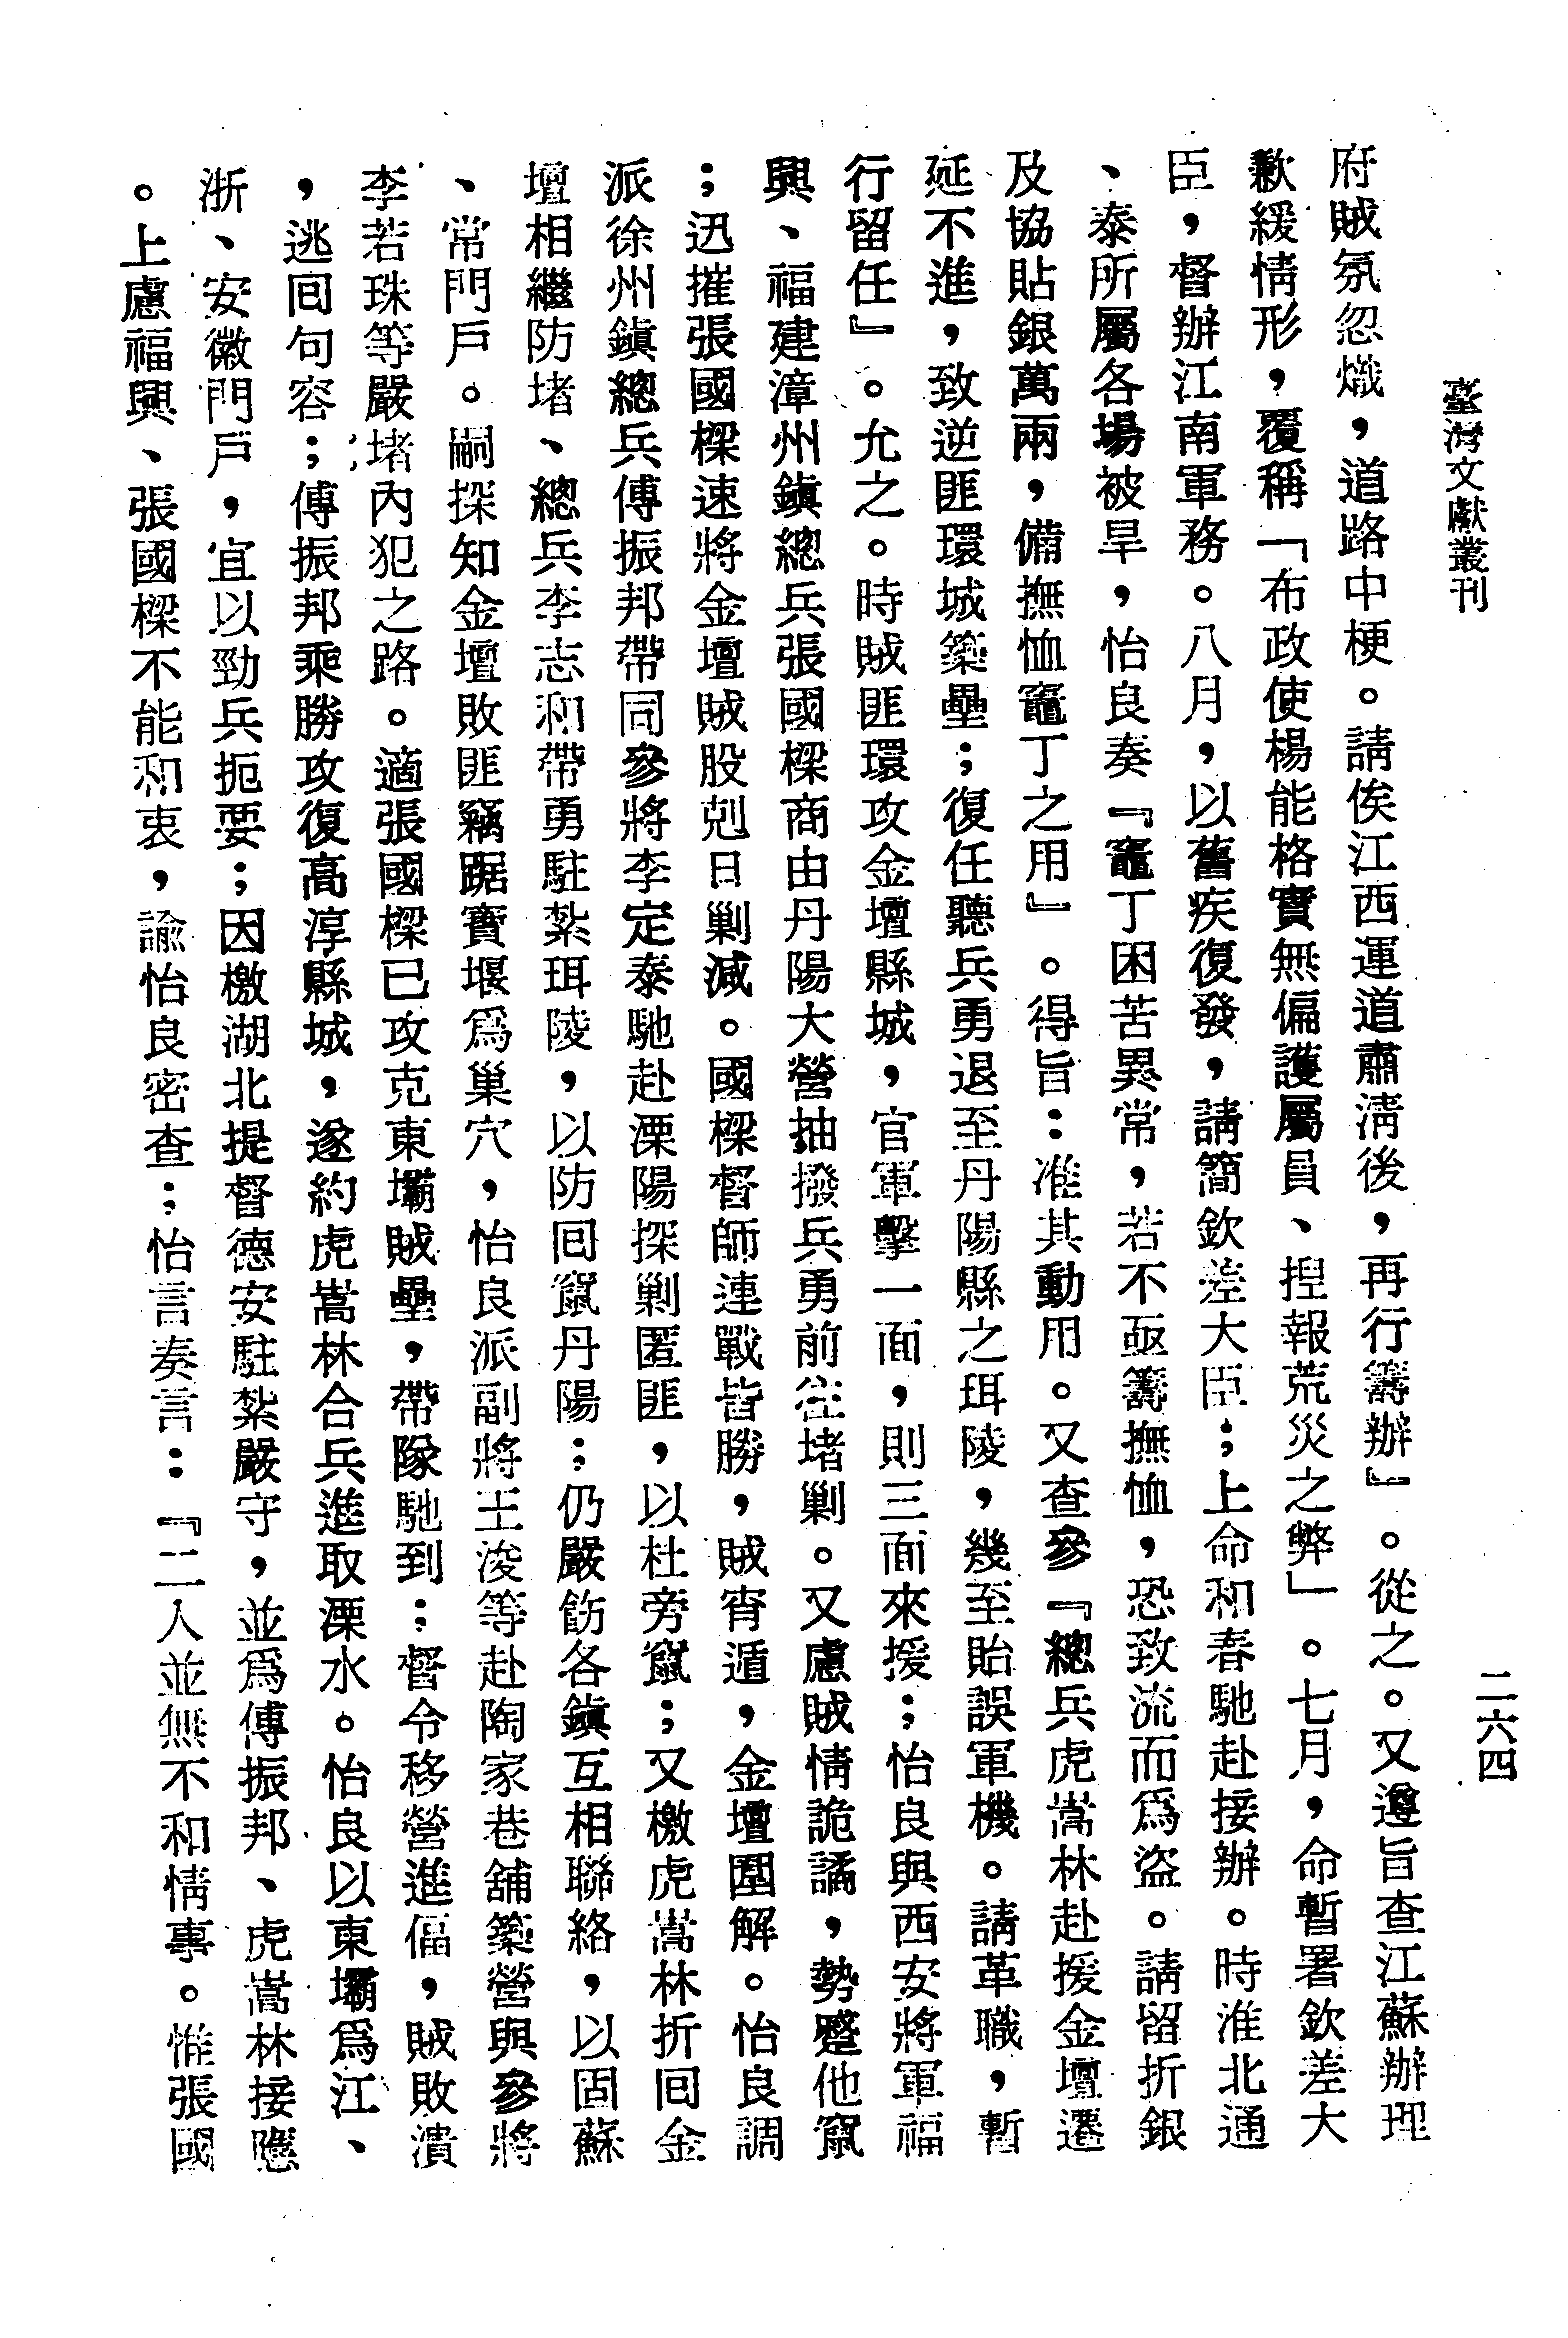 臺灣文獻叢刊
二六四
府賊氛忽熾，道路中梗。請俟江西運道肅淸後，再行籌辦』。從之。又遵旨查江蘇辦理
歉緩情形，覆稱「布政使楊能格實無偏護屬員、揑報荒災之弊」。七月，命暫署欽差大
臣，督辦江南軍務。八月，以舊疾復發，請簡欽差大臣；上命和春馳赴接辦。時淮北通
、泰所屬各場被旱，怡良奏『竈丁困苦異常，若不亟籌撫恤，恐致流而爲盜。請留折銀
及協貼銀萬兩，備撫恤竈丁之用』。得旨：准其動用。又查參『總兵虎嵩林赴援金壇遷
延不進，致逆匪環城築壘；復任聽兵勇退至丹陽縣之珥陵，幾至貽誤軍機。請革職，暫
行留任』。允之。時賊匪環攻金壇縣城，官軍擊一面，則三面來援；怡良與西安將軍福
興、福建漳州鎭總兵張國樑商由丹陽大營抽撥兵勇前往堵剿。又慮賊情詭譎，勢蹙他竄
；迅摧張國樑速將金壇賊股剋日剿減。國樑督師連戰皆勝，賊宵遁，金壇圍解。怡良調
派徐州鎭總兵傅振邦帶同參將李定泰馳赴溧陽探剿匿匪，以杜旁竄；又檄虎嵩林折囘金
壇相繼防堵、總兵李志和帶勇駐紮珥陵，以防囘竄丹陽；仍嚴飭各鎭互相聯絡，以固蘇
、常門戶。嗣探知金壇敗匪竊踞寶堰爲巢穴，怡良派副將王浚等赴陶家巷舖築營與參將
李若珠等嚴堵內犯之路。適張國樑已攻克東壩賊壘，帶隊馳到；督令移營進偪，賊敗潰
，逃囘句容；傅振邦乘勝攻復高淳縣城，遂約虎嵩林合兵進取溧水。怡良以東壩爲江、
浙、安徽門戶，宜以勁兵扼要；因檄湖北提督德安駐紮嚴守，並爲傅振邦、虎嵩林接應
。上慮福興、張國樑不能和衷，諭怡良密查；怡言奏言：『二人並無不和情事。惟張國